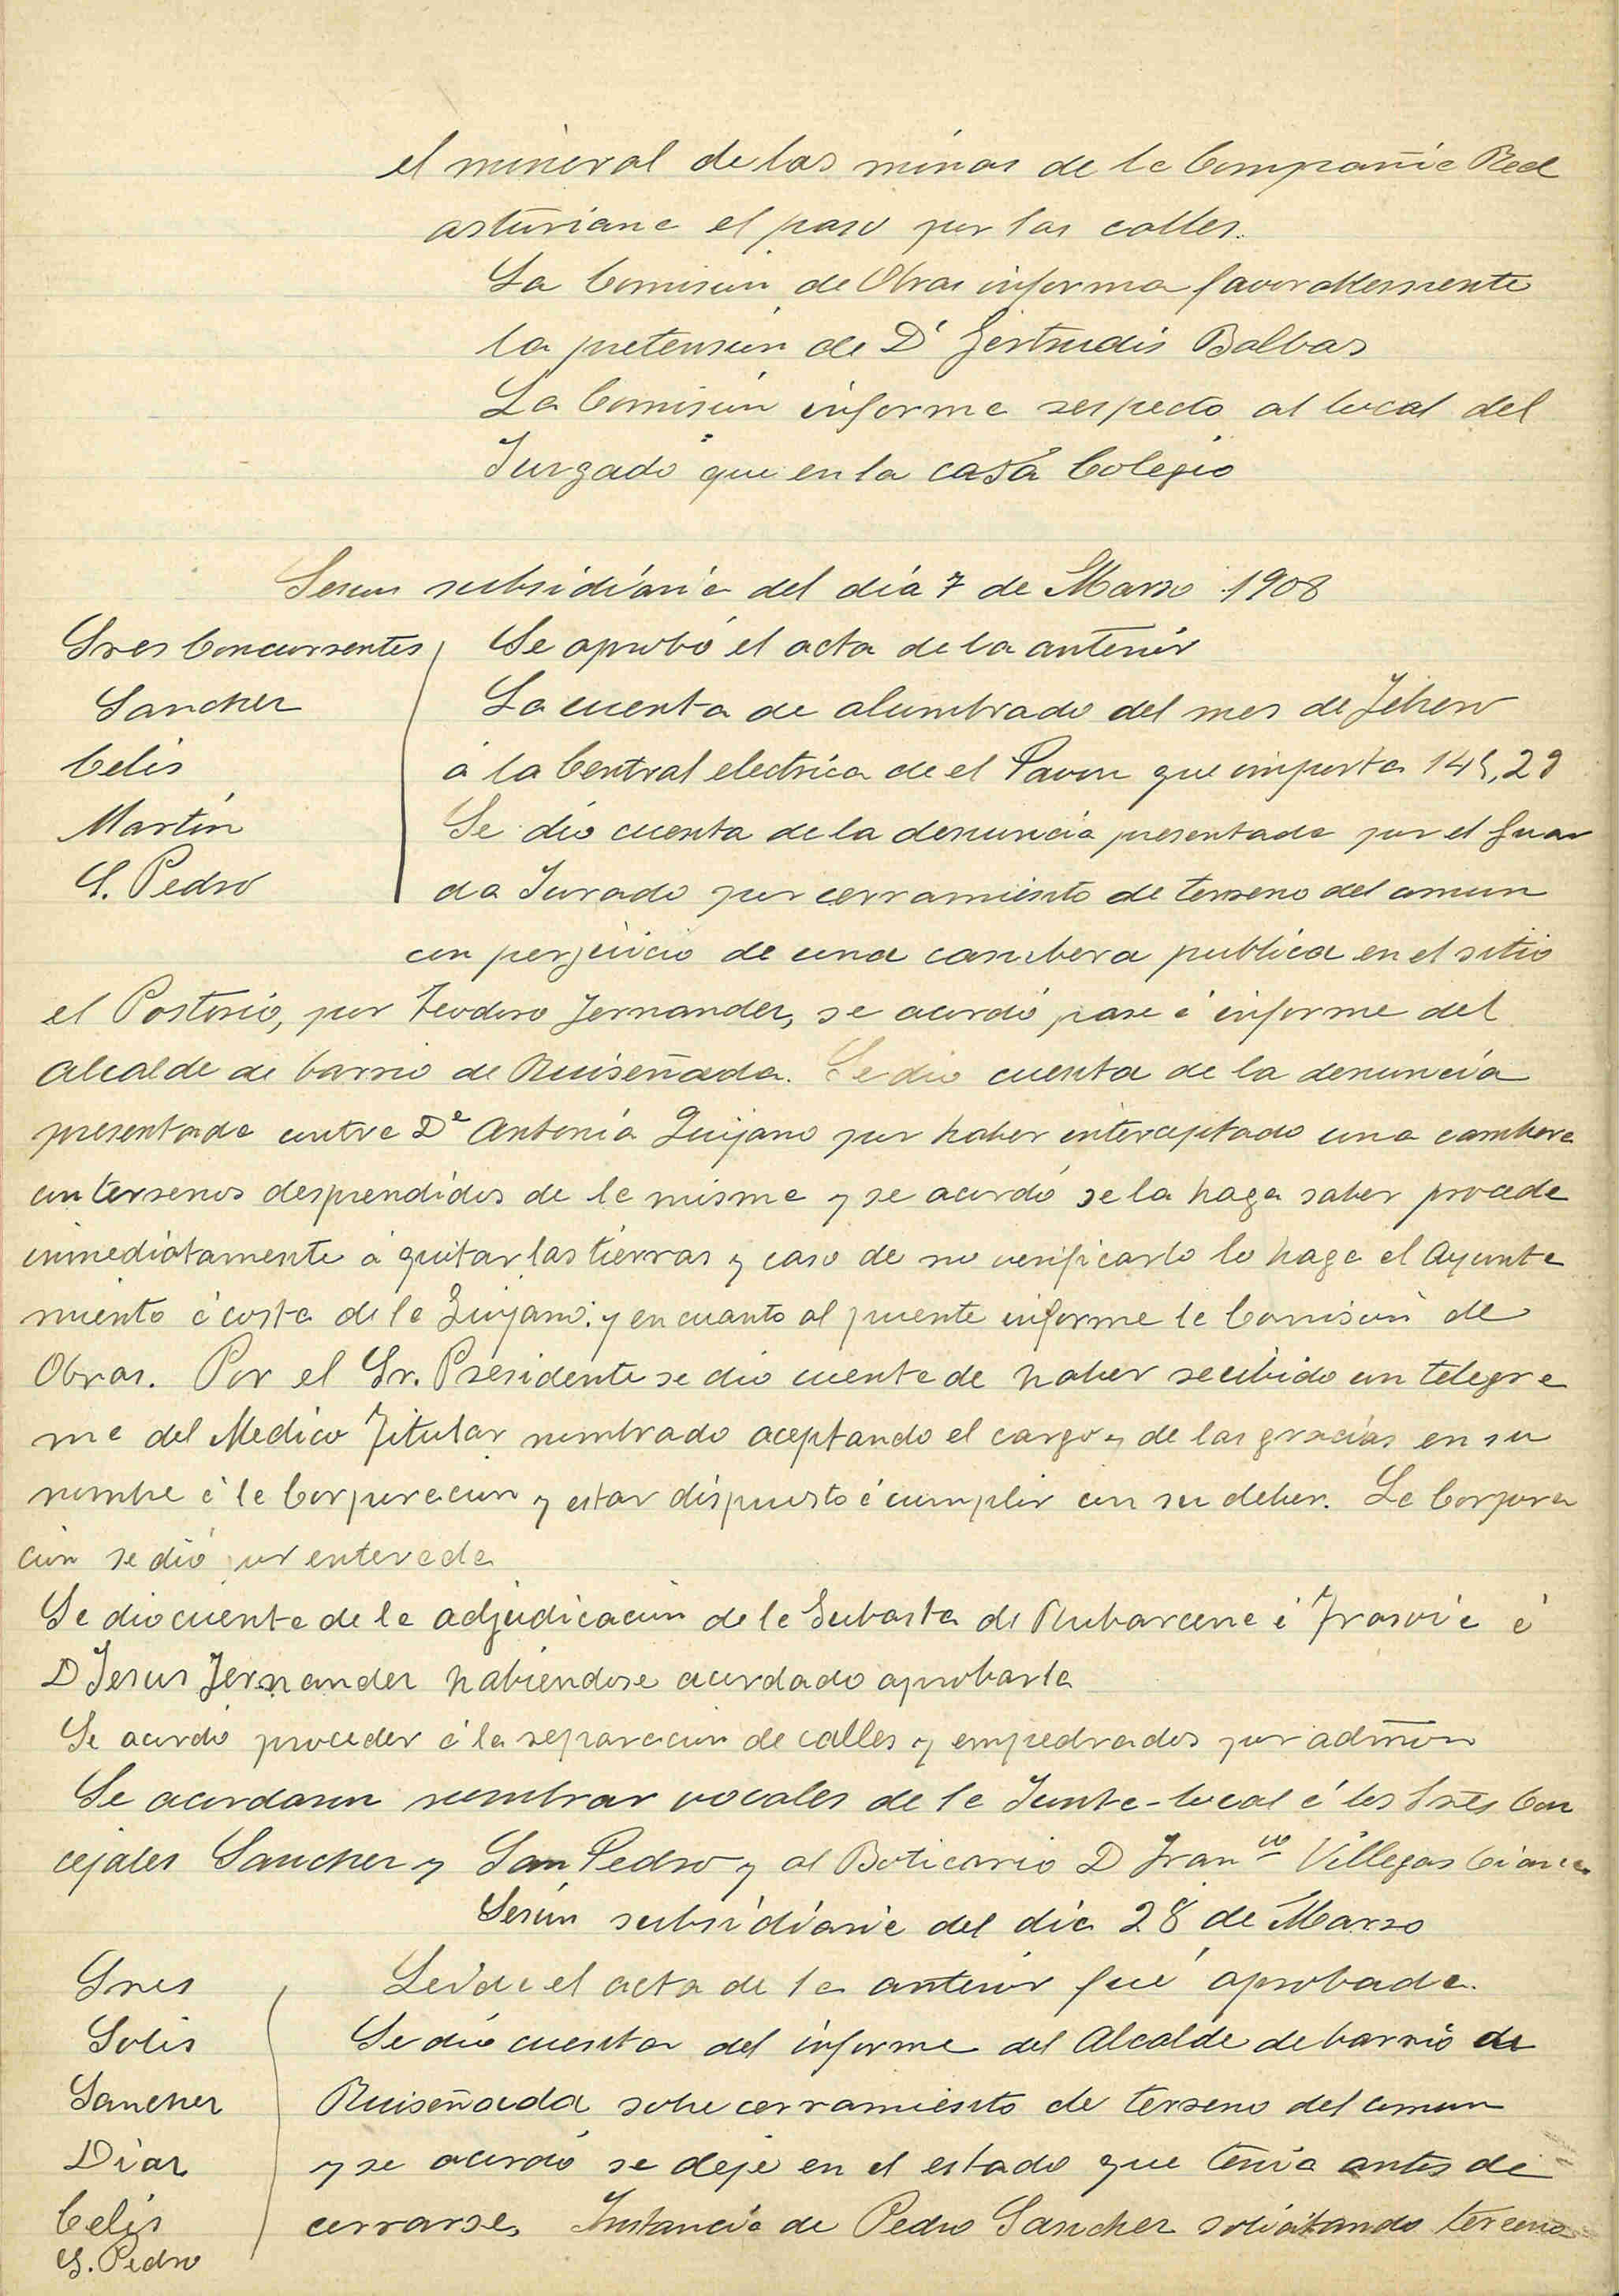 el mineral de las minas de la Compañia Real
asturiana el paso por las calles.
La Comision de Obras informa favorablemente
la pretension de Dª Gertrudis Balbas
La Comision informe respecto al local del
Juzgado que en la casa Colegio
Sesion subsidiaria del dia 7 de Marzo 1908
Sres Concurrentes Se aprobó el acta de la anterior
Sanchez La cuenta de alumbrado del mes de Febrero
Celis á la Central electrica de el Pavon que importa
Martin Se dio cuenta de la denuncia presentada por el Guar
S. Pedro da Jurado por cerramiento de terreno del comun
con perjuicio de una cambera publica en el sitio
el Postorio, por Teodoro Fernandez, se acordó pase á informe del
Alcalde de barrio de Ruiseñada. Se dio cuenta de la denuncia
presentada contra Dª Antonia Quijano por haber interceptado una cambera
con terrenos desprendidos de la misma y se acordó se la haga saber proceda
inmediatamente á quitar las tierras y caso de no verificarlo lo haga el Ayunta
miento á costa de la Quijano: y en cuanto al puente informe la Comision de
Obras. Por el Sr. Presidente se dio cuenta de haber recibido un telegra
ma del Medico Titular nombrado aceptando el cargo y de las gracias en su
nombre á la Corporacion y estar dispuesto á cumplir con su deber. La Corpora
cion se dió por enterada
Se dio cuenta de la adjudicacion de la Subasta de Rubarcena á Trasvia á
D Jesus Fernandez habiendose acordado aprobarla
Se acordo proceder á la reparacion de calles y empedrados por admon
Se acordaron nombrar vocales de la Junta-local á los Sres Con
cejales Sanchez y San Pedro y al Boticario D Franco Villegas
Sesion subsidiaria del dia 28 de Marzo
Sres Leida el acta de la anterior fué aprobada.
Solis Se dio cuenta del informe del Alcalde de barrio de
Sanchez Ruiseñada sobre cerramiento de terreno del comun
Diaz y se acordó se deje en el estado que tenia antes de
Celis cerrarse. Instancia de Pedro Sanchez solicitando terreno
S. Pedro